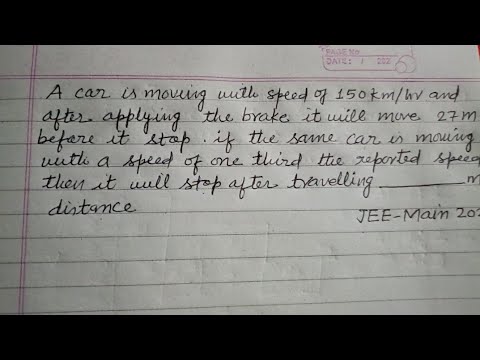 PAGE NO
DATE: / 202
A car is moving with speed of 150 km/hr and
after applying the brake it will move 27 m
before it stop. if the same car is moving
with a speed of one third the reported speed
then it will stop after travelling ________ m
distance
JEE-Main 202